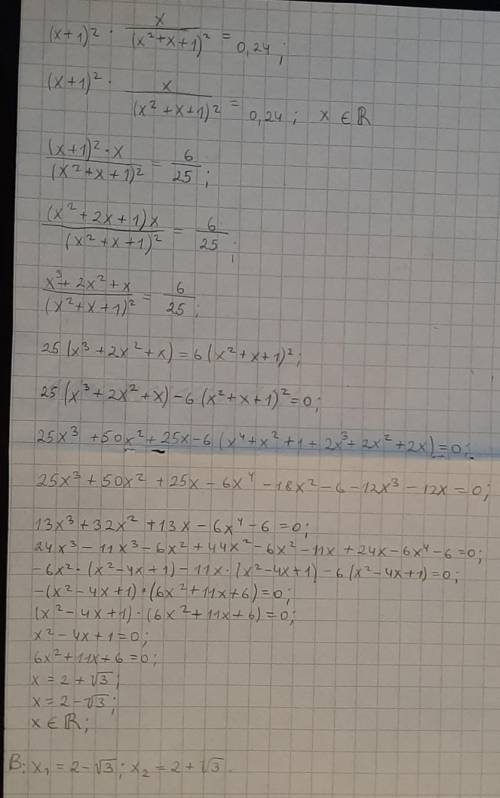 (x+1)² · x/(x²+x+1)² = 0,24;
(x+1)² · x/(x²+x+1)² = 0,24; x ∈ ℝ
(x+1)²·x/(x²+x+1)² = 6/25;
(x²+2x+1)x/(x²+x+1)² = 6/25;
x³+2x²+x/(x²+x+1)² = 6/25;
25(x³+2x²+x)=6(x²+x+1)²;
25(x³+2x²+x)-6(x²+x+1)²=0;
25x³+50x²+25x-6(x⁴+x²+1+2x³+2x²+2x)=0;
25x³+50x²+25x-6x⁴-18x²-6-12x³-12x=0;
13x³+32x²+13x-6x⁴-6=0;
24x³-11x³-6x²+44x²-6x²-11x+24x-6x⁴-6=0;
-6x²·(x²-4x+1)-11x·(x²-4x+1)-6(x²-4x+1)=0;
-(x²-4x+1)·(6x²+11x+6)=0;
(x²-4x+1)·(6x²+11x+6)=0;
x²-4x+1=0;
6x²+11x+6=0;
x=2+√3;
x=2-√3;
x∈ℝ;
B: x₁=2-√3; x₂=2+√3.